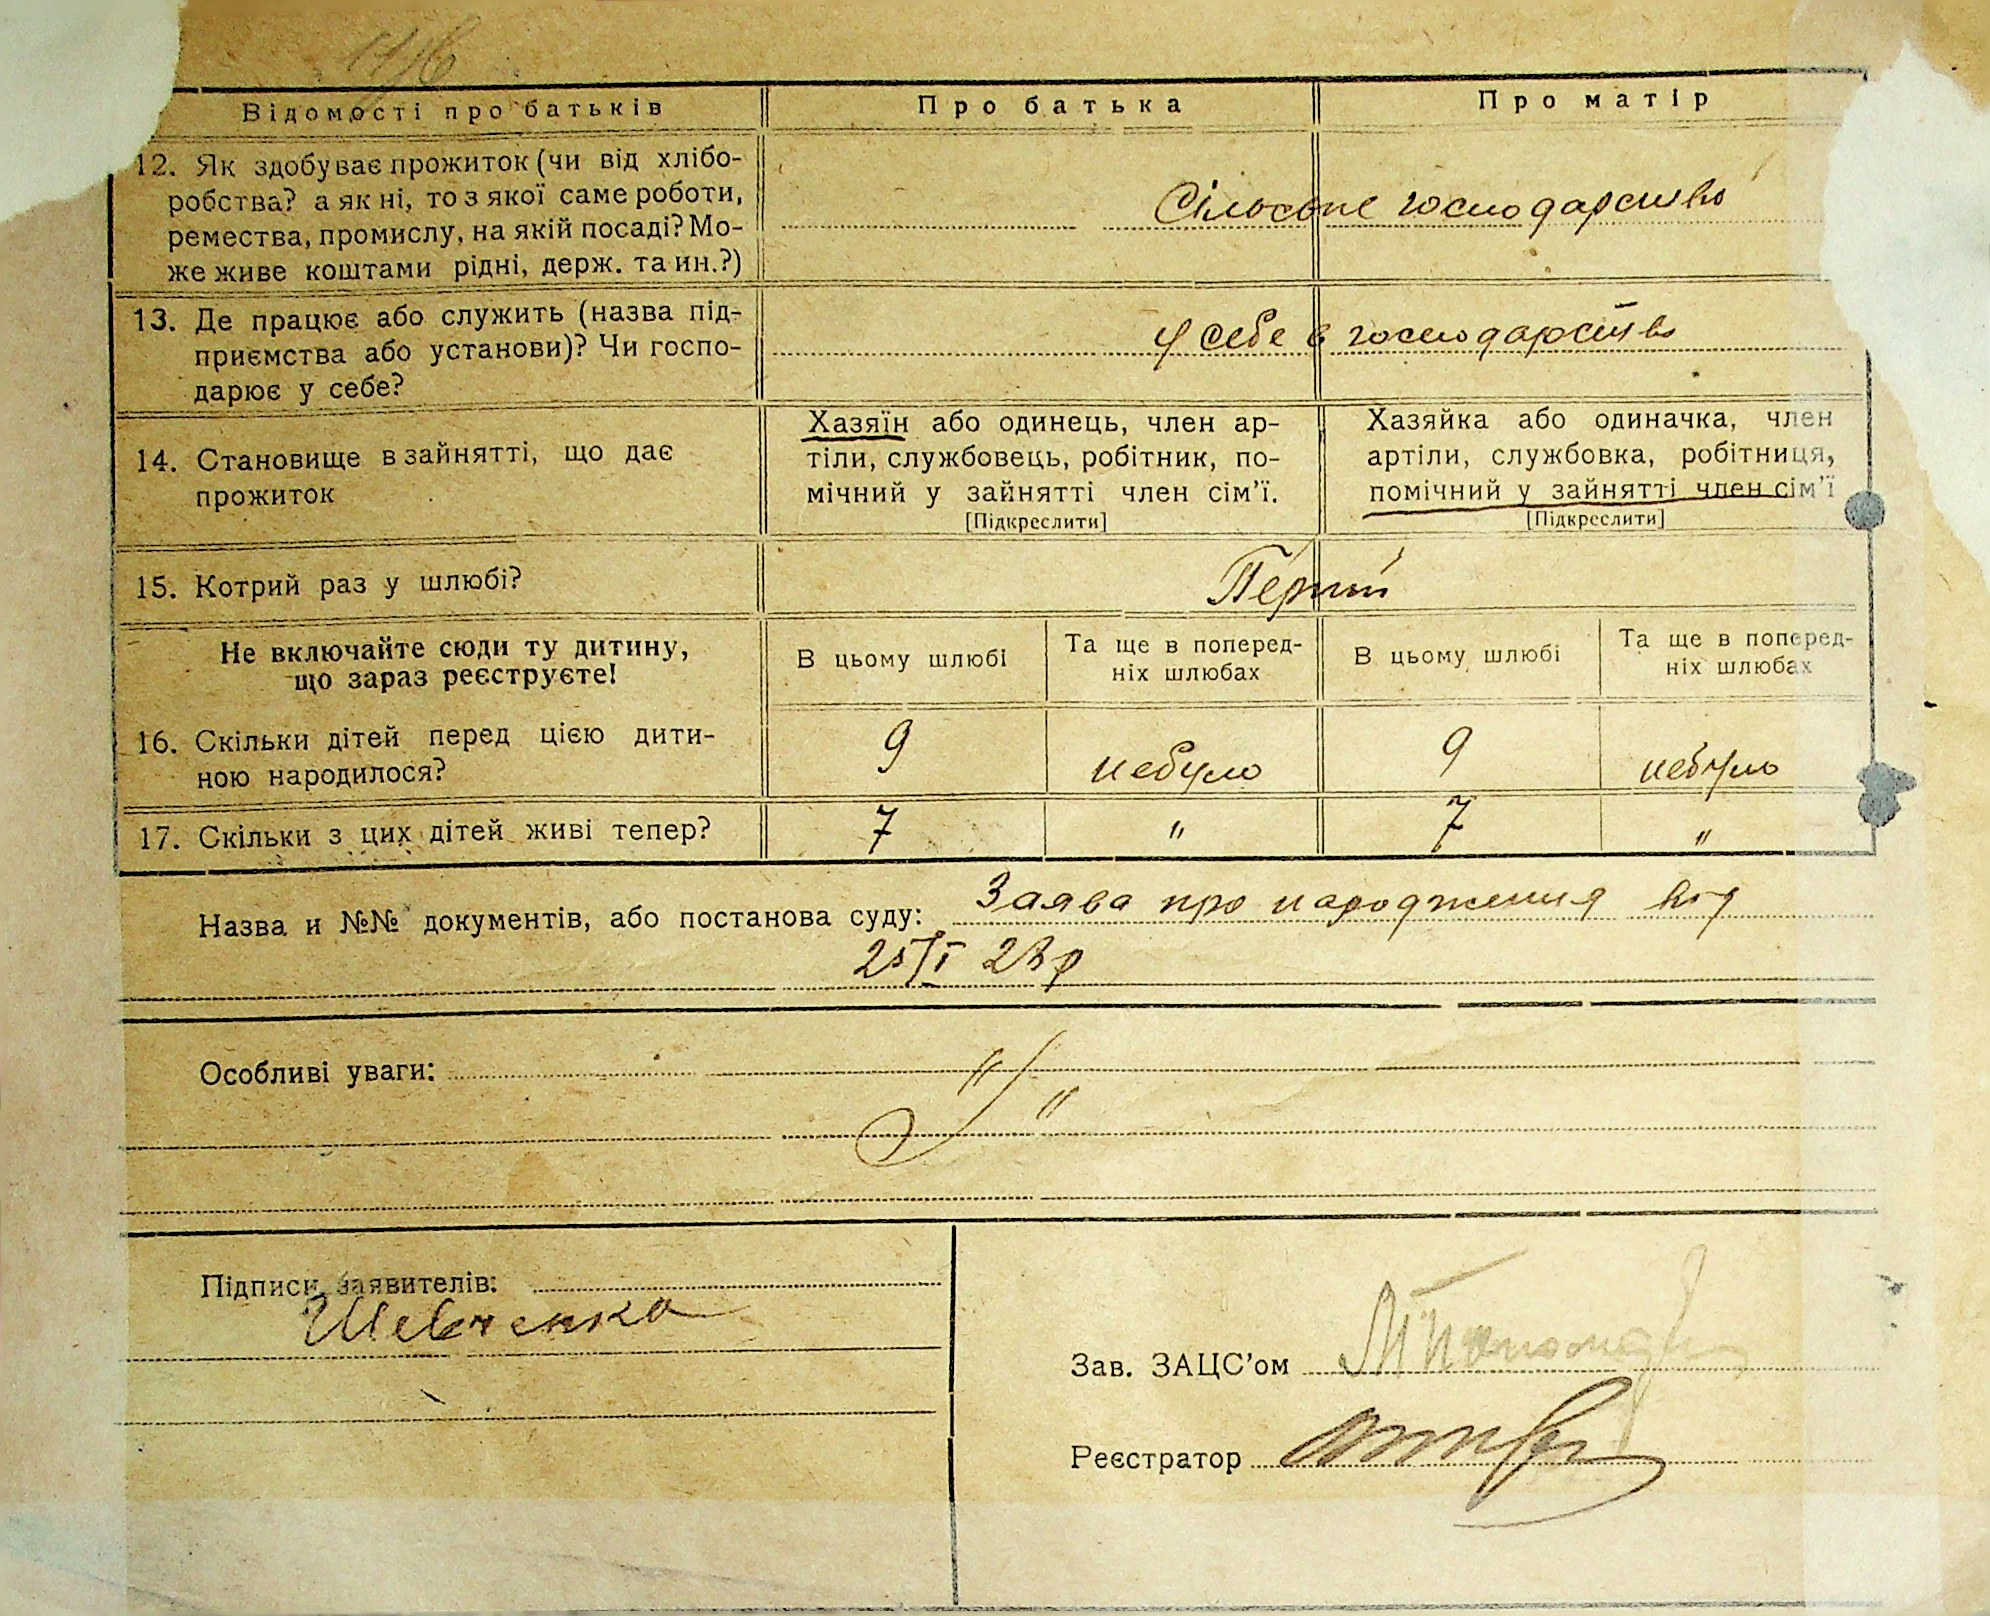 Відомості про батьків
Про батька
Про матір
12. Як здобуває прожиток (чи від хлібо-
робства? а як ні, то з якої саме роботи,
ремества, промислу, на якій посаді? Мо-
же живе коштами рідні, держ. та ин.?)
Сільське господарство
13. Де працює або служить (назва під-
приємства або установи)? Чи госпо-
дарює у себе?
У себе в господарстві
14. Становище в зайнятті, що дає
прожиток
Хазяїн або одинець, член ар-
тіли, службовець, робітник, по-
мічний у зайнятті член сім'ї.
[Підкреслити]
Хазяйка або одиначка, член
артіли, службовка, робітниця,
помічний у зайнятті член сім'ї
[Підкреслити]
15. Котрий раз у шлюбі?
Перший
Не включайте сюди ту дитину,
що зараз реєструєте!
В цьому шлюбі
Та ще в поперед-
ніх шлюбах
В цьому шлюбі
Та ще в поперед-
ніх шлюбах
16. Скільки дітей перед цією дити-
ною народилося?
9 небуло 9 небуло
17. Скільки з цих дітей живі тепер?
7 " 7 "
Назва и №№ документів, або постанова суду: Заява про народження від
25/I 28 р
Особливі уваги:
" / "
Підписи заявителів:
Шевченко
Зав. ЗАЦС'ом
Реєстратор